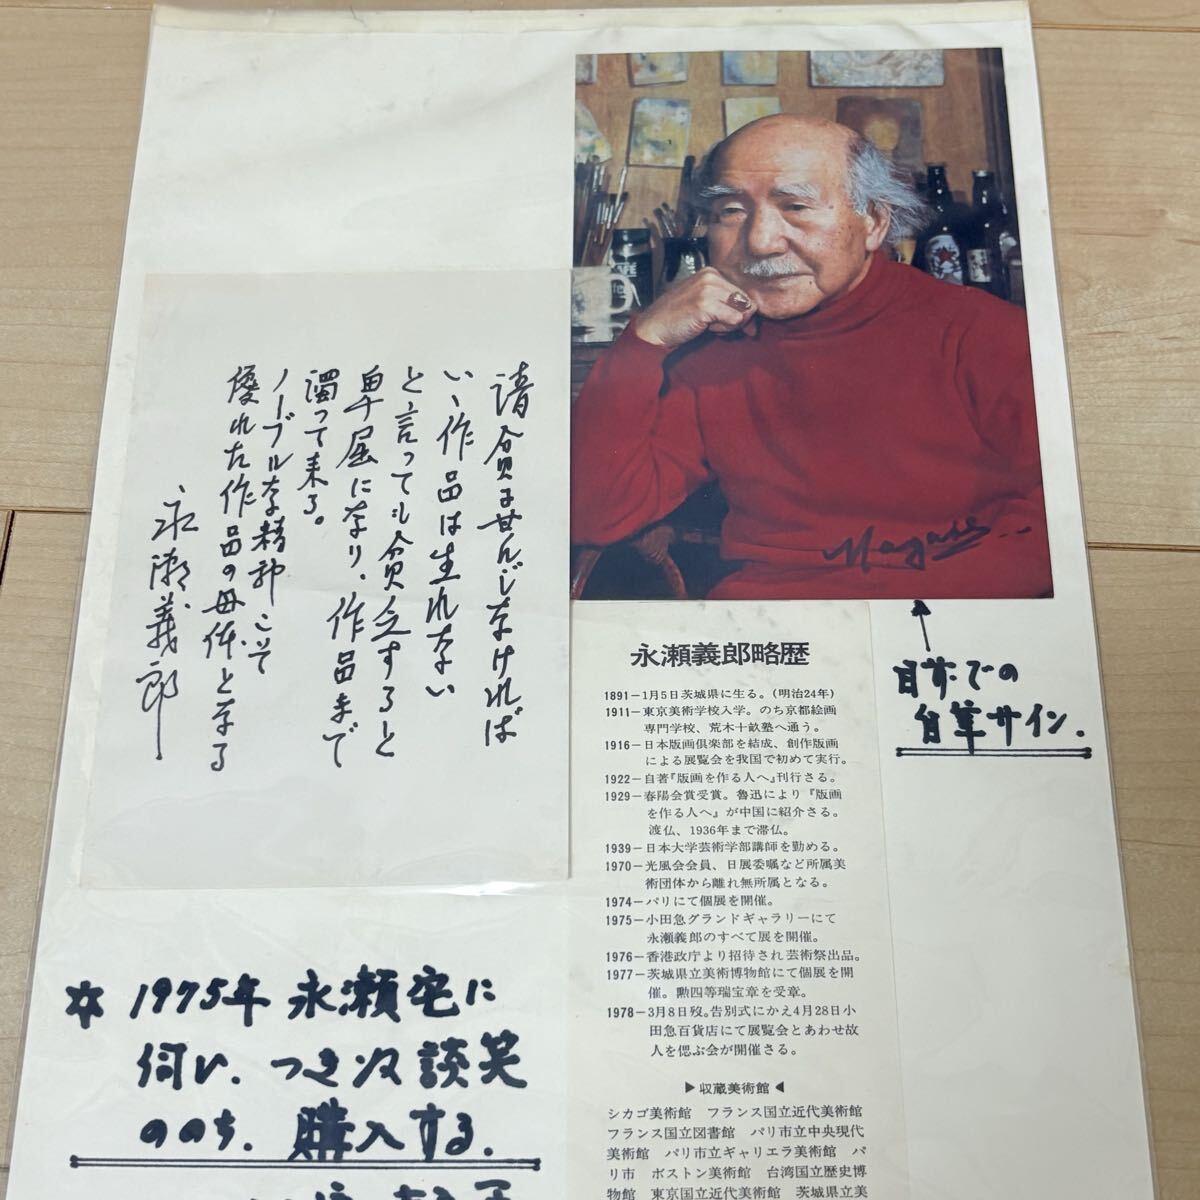 清貧に甘んじなければ
いゝ作品は生れない
と言っても貧乏すると
卑屈になり、作品まで
濁って来る。
ノーブルな精神こそ
優れた作品の母体となる
永瀬義郎
Nagase
目前での
自筆サイン.
永瀬義郎略歴
1891－1月5日茨城県に生る。(明治24年)
1911－東京美術学校入学。のち京都絵画
専門学校、荒木十畝塾へ通う。
1916－日本版画倶楽部を結成、創作版画
による展覧会を我国で初めて実行。
1922－自著『版画を作る人へ』刊行さる。
1929－春陽会賞受賞。魯迅により『版画
を作る人へ』が中国に紹介さる。
渡仏、1936年まで滞仏。
1939－日本大学芸術学部講師を勤める。
1970－光風会会員、日展委嘱など所属美
術団体から離れ無所属となる。
1974－パリにて個展を開催。
1975－小田急グランドギャラリーにて
永瀬義郎のすべて展を開催。
1976－香港政庁より招待され芸術祭出品。
1977－茨城県立美術博物館にて個展を開
催。勲四等瑞宝章を受章。
1978－3月8日歿。告別式にかえ4月28日小
田急百貨店にて展覧会とあわせ故
人を偲ぶ会が開催さる。
▶収蔵美術館◀
シカゴ美術館　フランス国立近代美術館
フランス国立図書館　パリ市立中央現代
美術館　パリ市立ギャリエラ美術館　パ
リ市　ボストン美術館　台湾国立歴史博
物館　東京国立近代美術館　茨城県立美
✡ 1975年 永瀬宅に
伺い、つきヌ談笑
ののち、購入する.